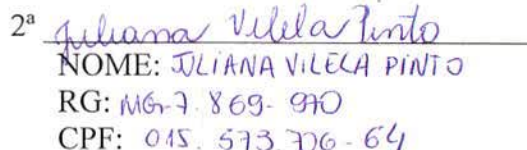 2ª Juliana Vilela Pinto
NOME: JULIANA VILELA PINTO
RG: MG-7.869-970
CPF: 015.573.776-64